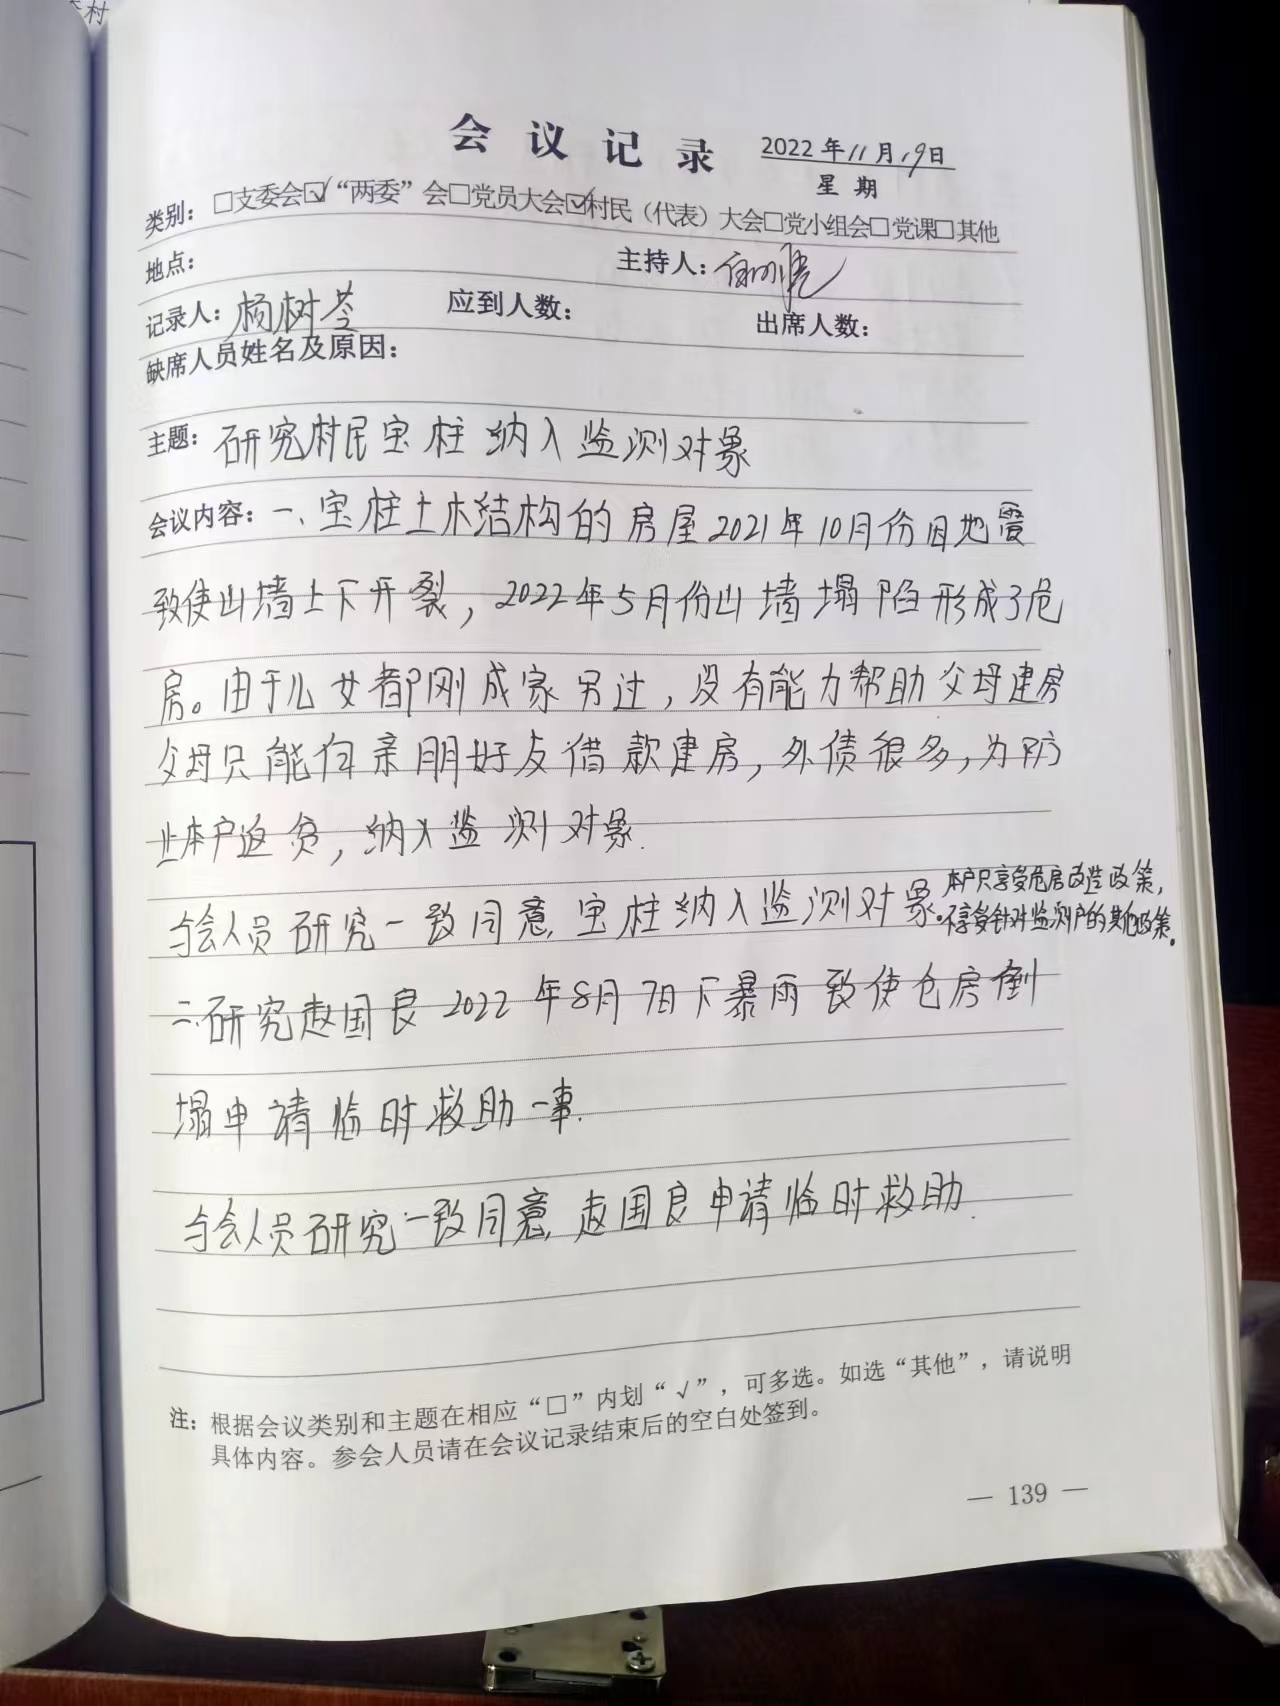 村
会议记录 2022年11月19日
星期
类别：□支委会☑“两委”会□党员大会☑村民（代表）大会□党小组会□党课□其他
地点： 主持人：
记录人：杨树苓 应到人数： 出席人数：
缺席人员姓名及原因：
主题：研究村民宝柱纳入监测对象
会议内容：一、宝柱土木结构的房屋2021年10月份因地震
致使山墙上下开裂，2022年5月份山墙塌陷形成了危
房。由于儿女都刚成家另过，没有能力帮助父母建房
父母只能向亲朋好友借款建房，外债很多，为防
止本户返贫，纳入监测对象.
与会人员研究一致同意，宝柱纳入监测对象.本户只享受危房改造政策，
不享受针对监测户的其他政策。
二.研究赵国良2022年8月7日下暴雨致使仓房倒
塌申请临时救助一事.
与会人员研究一致同意，赵国良申请临时救助.
注：根据会议类别和主题在相应“□”内划“√”，可多选。如选“其他”，请说明
具体内容。参会人员请在会议记录结束后的空白处签到。
— 139 —